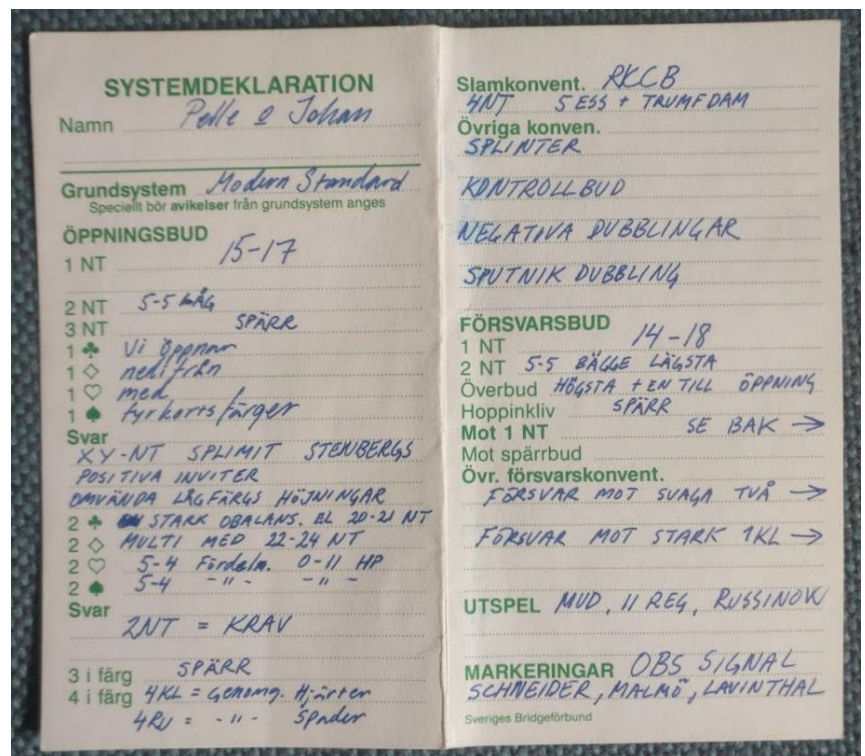 SYSTEMDEKLARATION
Namn Pelle o Johan
Grundsystem Modern Standard
Speciellt bör avikelser från grundsystem anges
ÖPPNINGSBUD
1 NT 15-17
2 NT 5-5 LÅG
3 NT SPÄRR
1 ♣ Vi öppnar
1 ♢ nedifrån
1 ♡ med
1 ♠ fyrkortsfärger
Svar
XY-NT SPLIMIT STENBERGS
POSITIVA INVITER
OMVÄNDA LÅGFÄRGS HÖJNINGAR
2 ♣ STARK OBALANS. EL 20-21 NT
2 ♢ MULTI MED 22-24 NT
2 ♡ 5-4 Fördeln. 0-11 HP
2 ♠ 5-4 -"- -"-
Svar
2NT = KRAV
3 i färg SPÄRR
4 i färg 4KL = Genomg. Hjärter
4RU = -"- Spader
Slamkonvent. RKCB
4NT 5 ESS + TRUMFDAM
Övriga konven.
SPLINTER
KONTROLLBUD
NEGATIVA DUBBLINGAR
SPUTNIK DUBBLING
FÖRSVARSBUD
1 NT 14-18
2 NT 5-5 BÄGGE LÄGSTA
Överbud HÖGSTA + EN TILL ÖPPNING
Hoppinkliv SPÄRR
Mot 1 NT SE BAK →
Mot spärrbud
Övr. försvarskonvent.
FÖRSVAR MOT SVAGA TVÅ →
FÖRSVAR MOT STARK 1KL →
UTSPEL MUD, 11 REG, RUSSINOW
MARKERINGAR OBS SIGNAL
SCHNEIDER, MALMÖ, LAVINTHAL
Sveriges Bridgeförbund